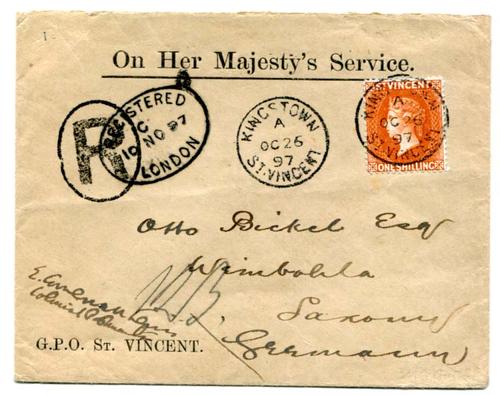 On Her Majesty's Service.
REGISTERED
C
10 NO 97
LONDON
R
KINGSTOWN
A
OC 26
97
ST. VINCENT
ST VINCENT
KINGSTOWN
A
OC 26
97
ST. VINCENT
ONE SHILLING
Otto Bickel Esq
Saxony
Germany
Colonial
G.P.O. ST. VINCENT.